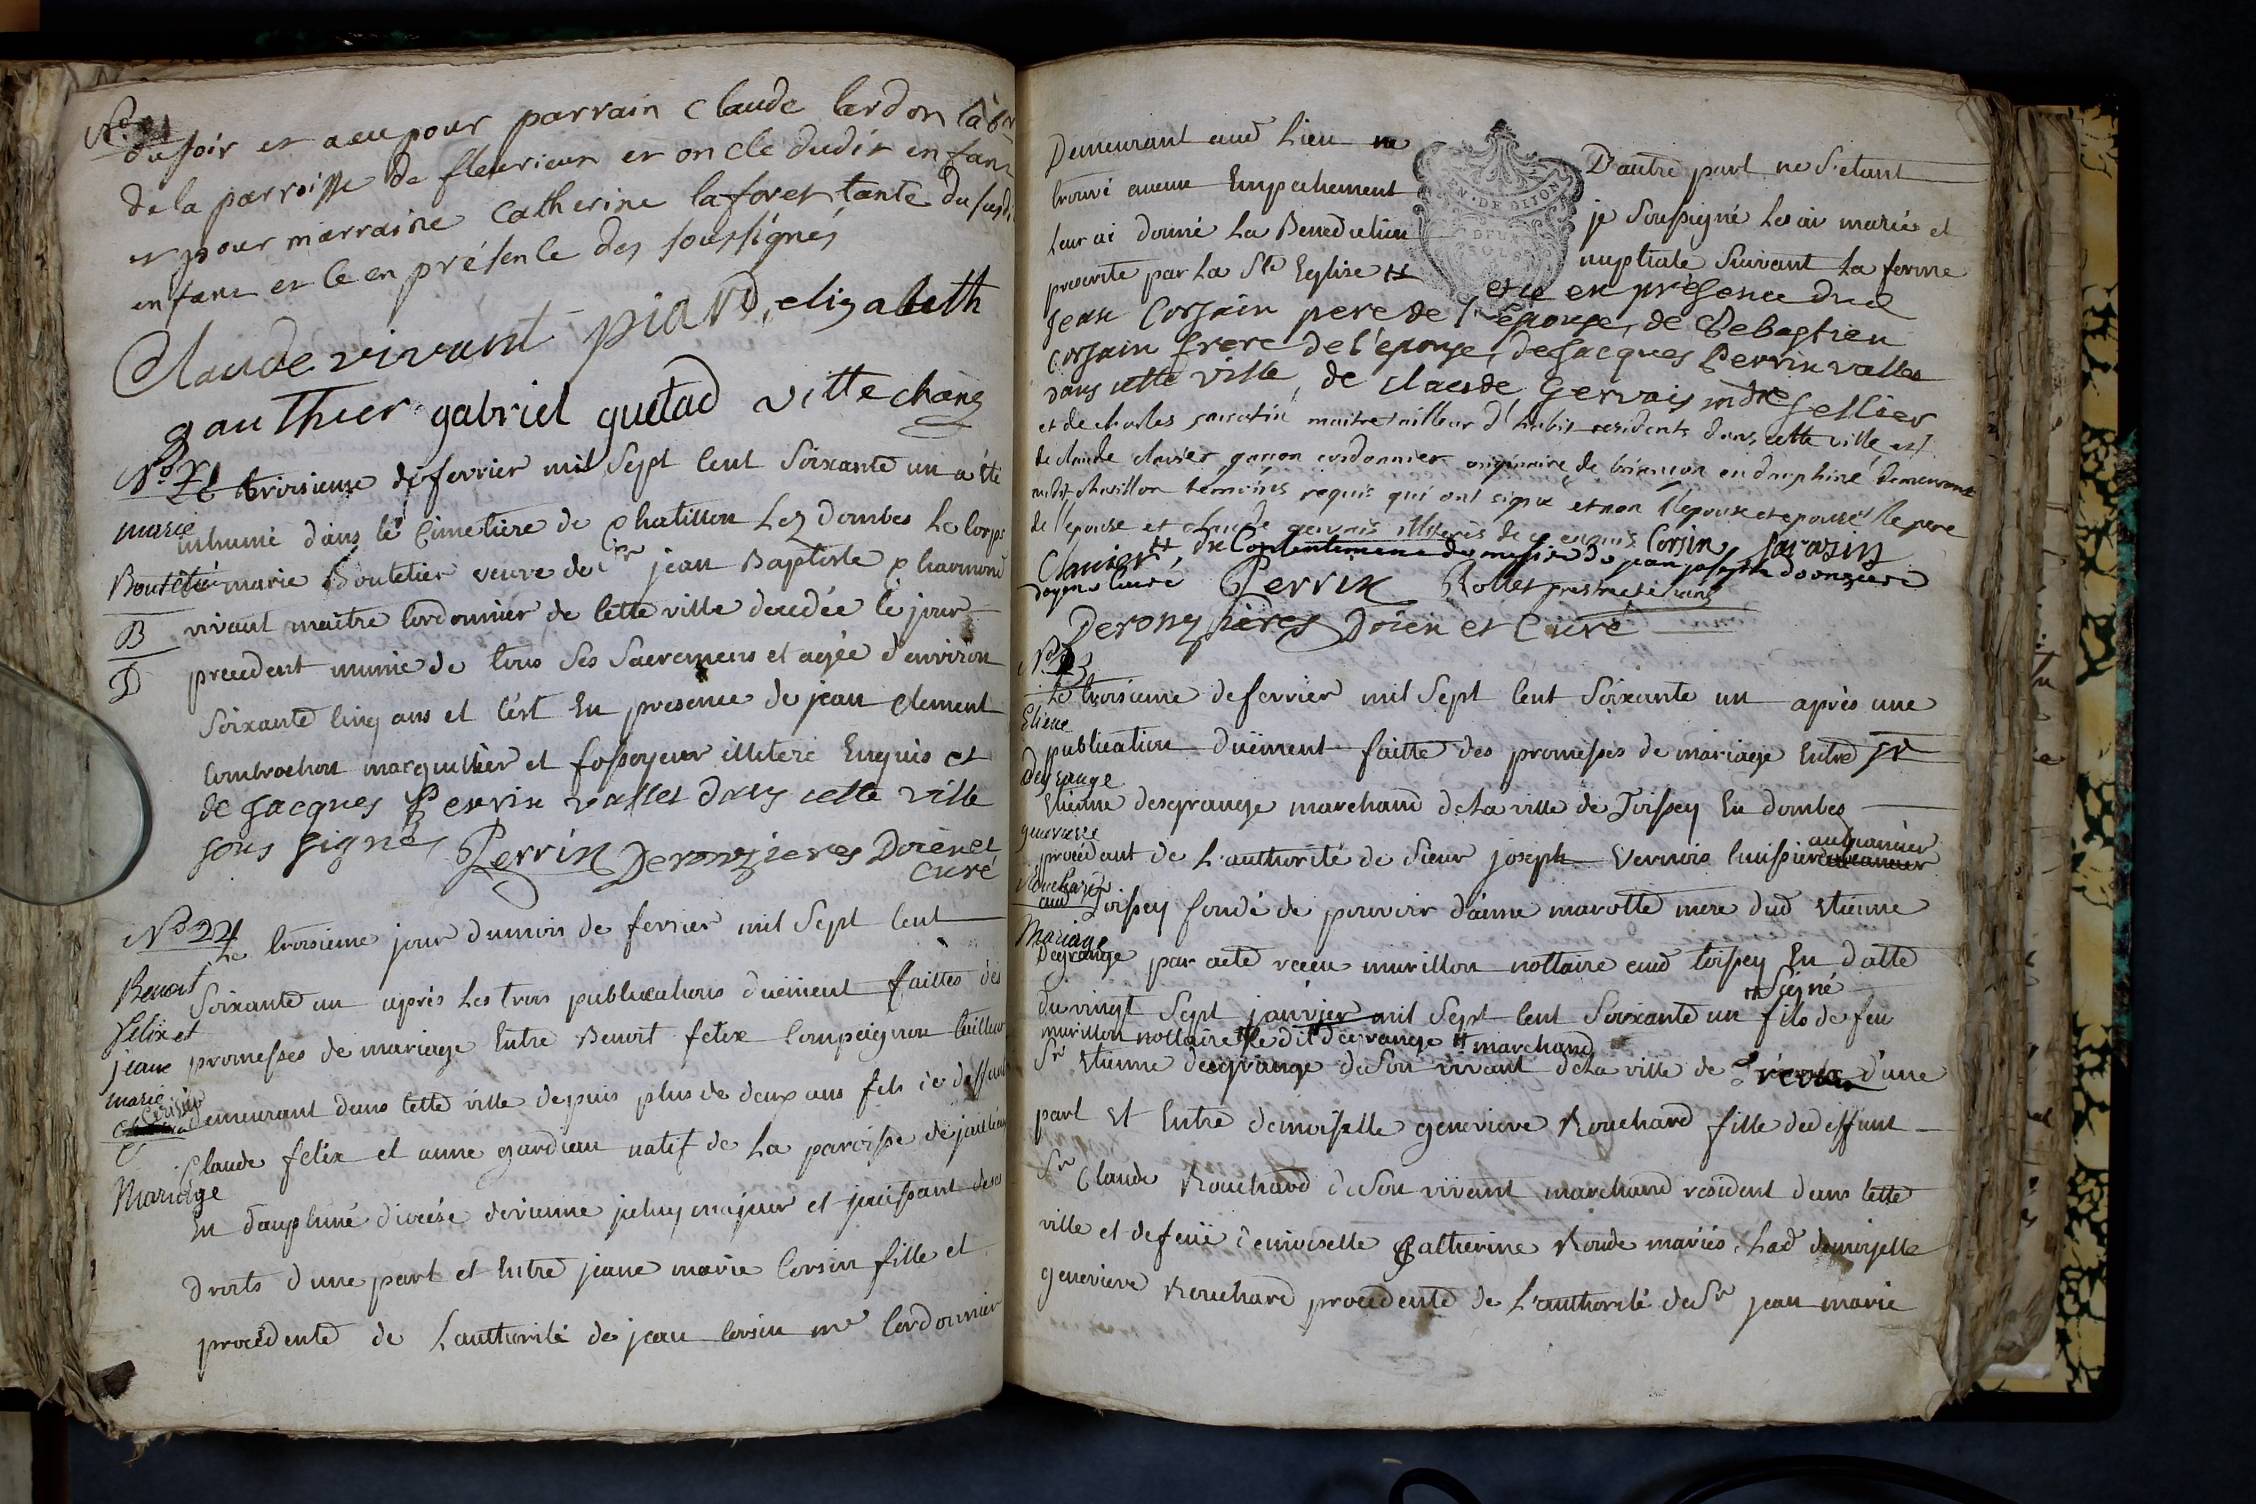 du soir et a eu pour parrain Claude lardon lab
de la parroisse de fleurieux et oncle dudit enfant
et pour marraine Catherine laforet tante du susdit
enfant et ce en présence des soussignés
Claude vivant piard, elizabeth
gauthier gabriel guetad vittechéné
Le troisieme de fevrier mil Sept Cent Soixante un a été
marie
inhumé dans le Cimetiere de Chatillon Lez dombes Le Corps
Boutétié
de marie Boutetier veuve de Sr jean Baptiste charmond
B
vivant maitre Cordonnier de Cette ville decedée le jour
D
precedent munie de tous Ses Sacremens et agée d'environ
Soixante Cinq ans et C'est En presence de jean Clement
Combrochon marguillier et fossoyeur illiteré Enquis et
de jacques Perrin vallet dans cette ville
sous signé Perrin Deronzieres Doien et
Curé
No 24
Le troisieme jour du mois de fevrier mil Sept Cent
Benoit
Soixante un après Les trois publications duëment faittes des
felix et
promesses de mariage Entre Benoit felix Compagnon tailleur
jeane
marie
Demeurant dans Cette ville depuis plus de deux ans fils de deffunt
Claude felix et anne gardien natif de La paroisse de
Mariage
En dauphiné diocése de vienne jceluy majeur et jouissant de ses
droits d'une part et Entre jeane marie Corsin fille et
procédente de L'authorité de jean Corsin me Cordonnier
Demeurant aud Lieu D'autre part ne S'etant
trouvé aucun Empechement je Soussigné Les ai mariés et
Leur ai donné La Benediction nuptiale Suivant La forme
prescrite par La Ste Eglise et ce en présence dud
Jean Corsain pere de l'épouse, de Sebastien
Corsain frere de l'épouse, de Jacques Perrin vallet
dans cette ville, de Claude Gervais mdre Sellier
et de charles sarratin maitre tailleur d'habit residents dans cette ville, et
de claude clavier garçon cordonnier originaire de briançon en dauphiné demeurant
audit chatillon temoins requis qui ont signé et non l'epoux et epouse le pere
de l'epouse et claude gervais illiterés de ce enquis Corsin Sarasin
Clavier du Consentement de messire de jean joseph deronziere
doyen curé Perrin Rollet prestre vicaire
Deronzières Doien et Curé
Le troisieme de fevrier mil Sept Cent Soixante un après une
Etiene
publication duëment faitte des promesses de mariage Entre Sr
Desgrange
Etienne desgrange marchand de La ville de Toissey En dombes
genevieve
procédant de L'authorité de Sieur joseph Vernois huissier audiancier
Rouchard
aud Toissey fondé de pouvoir d'anne marotte mere dud Etienne
Mariage
Degrange par acte recu murillon nottaire aud toissey En datte
du vingt Sept janvier mil Sept Cent Soixante un Signé fils de feu
murillon nottaire le dit degrange marchand
Sr Etienne desgrange de Son vivant de La ville de Trévoux d'une
part Et Entre demoiselle genevieve Rouchard fille de deffunt
Sr Claude Rouchard de Son vivant marchand resident dans Cette
ville et de feüe demoiselle Catherine Ronde mariés, Lad demoiselle
genevieve Rouchard procedente de L'authorité de Sr jean marie